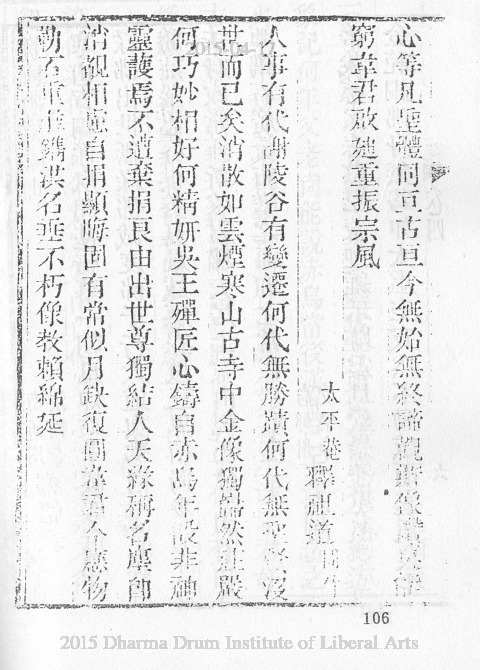 心等凡聖體何亘古亘今無始無終諦觀斯像
窮韋君啟建重振宗風
太平菴釋祖道
人事有代謝陵谷有變遷何代無勝蹟何代無聖賢沒
世而已矣消散如雲煙寒山古寺中金像獨巋然莊嚴
何巧妙相好何精妍吳王殫匠心鑄自赤烏年設非神
靈護焉不遭棄捐良由出世尊獨結人天緣稱名塵卽
消覩相
自捐顯晦固有常似月缺復圓韋君今
物
勒石重
鐫洪名垂不朽像教賴綿延
2015.04.17
106
2015 Dharma Drum Institute of Liberal Arts